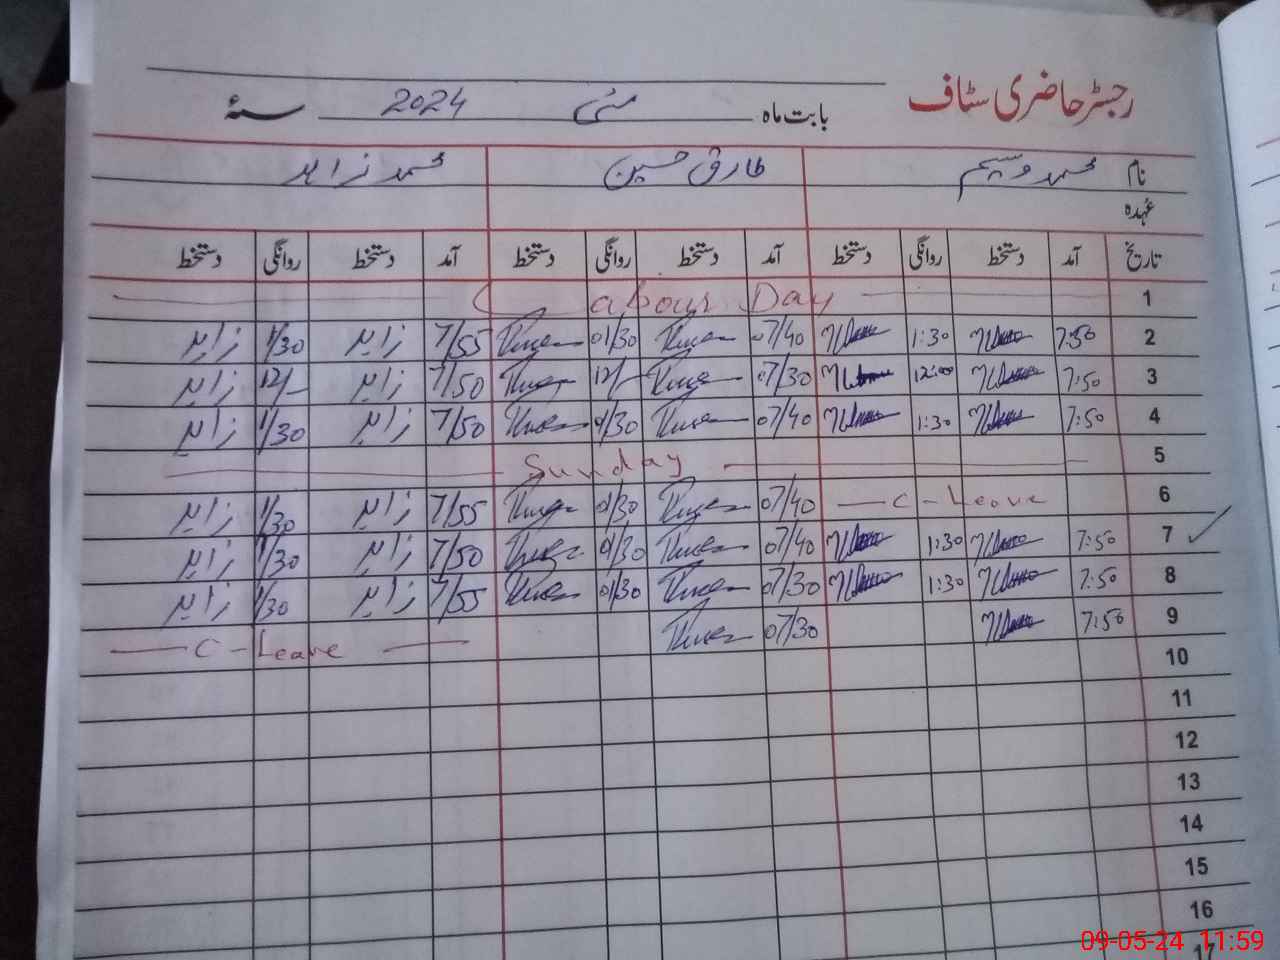 رجسٹر حاضری سٹاف
بابت ماہ مئی 2024 سنۂ
نام محمد وسیم طارق حسین محمد زاہد
عہدہ
تاریخ آمد دستخط روانگی دستخط آمد دستخط روانگی دستخط آمد دستخط روانگی دستخط
1 Labour Day
2 7:50 1:30 07/40 01/30 7/55 زاہد 1/30 زاہد
3 7:50 12:00 07/30 12/- 7/50 زاہد 12/- زاہد
4 7:50 1:30 07/40 01/30 7/50 زاہد 1/30 زاہد
5 Sunday
6 C-Leave 07/40 01/30 7/55 زاہد 1/30 زاہد
7 7:50 1:30 07/40 01/30 7/50 زاہد 1/30 زاہد
8 7:50 1:30 07/30 01/30 7/55 زاہد 1/30 زاہد
9 7:50 07/30 C-Leave
10
11
12
13
14
15
16
17
09-05-24 11:59